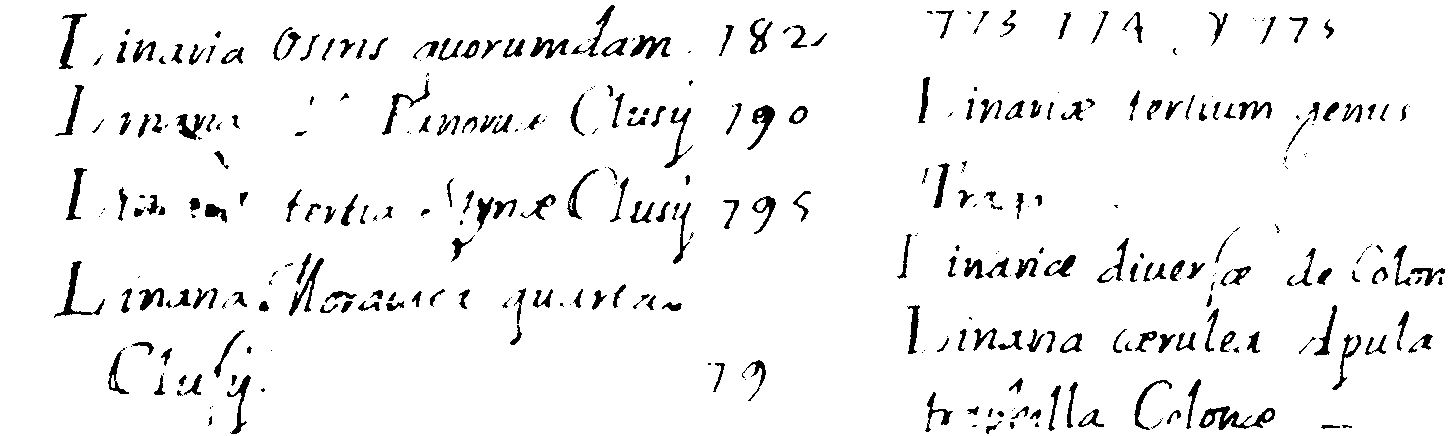 Linaria Osiris quorumdam 182
Linaria Panoniæ Clusij 790
tertia Styriæ Clusij 795
Linaria Moravica quarta
Clusij. 79
773 774 y 775
Linariæ tertium genus
Trag
Linariæ diversæ de Colon
Linaria cærulea Apula
Colonæ